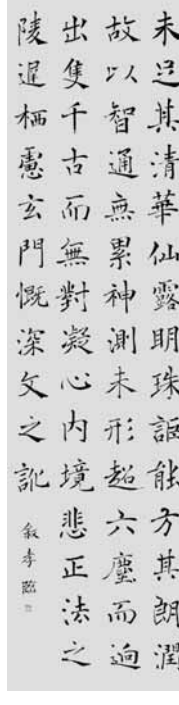 未足其清華仙露明珠詎能方其朗潤
故以智通無累神測未形超六塵而迥
出隻千古而無對凝心內境悲正法之
陵遲栖慮玄門慨深文之訛
叙孝臨